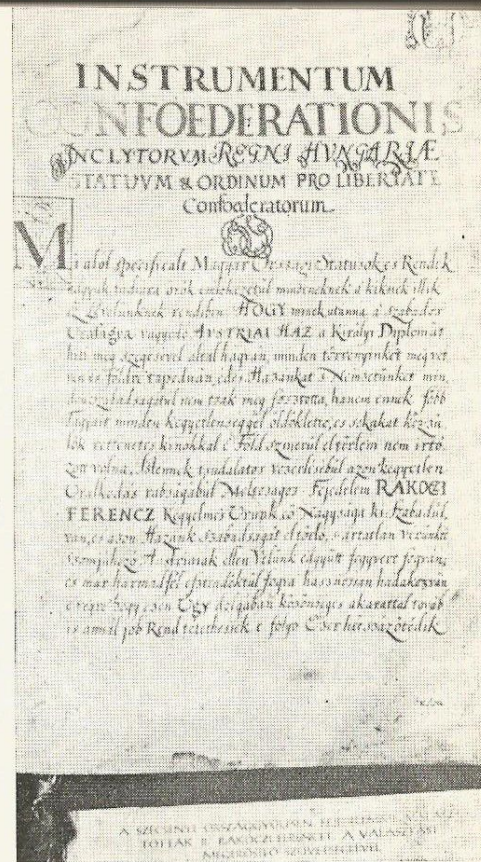 INSTRUMENTUM
CONFOEDERATIONIS
INCLYTORVM REGNI HVNGARIÆ
STATUVM & ORDINUM PRO LIBERTATE
Confoederatorum
Mi alól specificalt Magyar Országi Statusok és Rendek
adgyuk tudtára örök emlékezetül mindeneknek a kiknek illik
rendiben. HOGY minekutánna á szabados
Uraságra vágyódó AVSTRIAI HAZ a Királyi Diplomát
hiti meg szegésével által hágván, minden törvényinket megvet
vén és földre tapodván, édes Hazánkat s Nemzetünket min
szabadságátúl nem csak meg fosztotta, hanem ennek főbb
Tagjait minden kegyetlenséggel öldöklette, és sokakat közzü
lök rettenetes kinokkal é Föld szinerül eltörleni nem irtó
zott volna, Istennek csudálatos vezérlésébül azon kegyetlen
Uralkodás rabságábúl Méltóságos Fejedelem RAKOCZI
FERENCZ Kegyelmes Urunk eő Nagysága ki szabadúl
ván, és azon Hazánk szabadságát eltörlő, s ártatlan vérünkre
szomjuhozó Austriaiak ellen Velünk eggyütt fegyvert fogván,
és már harmadfél esztendőktűl fogva hasznossan hadakozván
é végre hogy ezen Ügy dolgában közönséges akarattal továb
is annál jób Rend tétethessék é folyó Ezer hétszáz ötödik
A SZÉCSÉNYI ORSZÁGGYŰLÉSEN FEJEDELEMMÉ VÁLASZ-
TOTTÁK II. RÁKÓCZI FERENCET. A VÁLASZTÁST
MEGERŐSÍTŐ SZÖVETSÉGLEVÉL